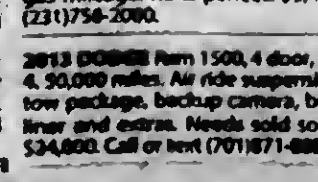 (231)756-2000.
2013 DODGE Ram 1500, 4 door,
4, 90,000 miles. Air ride suspensi
tow package, backup camera, b
liner and extras. Needs sold so
$24,000. Call or text (701)871-